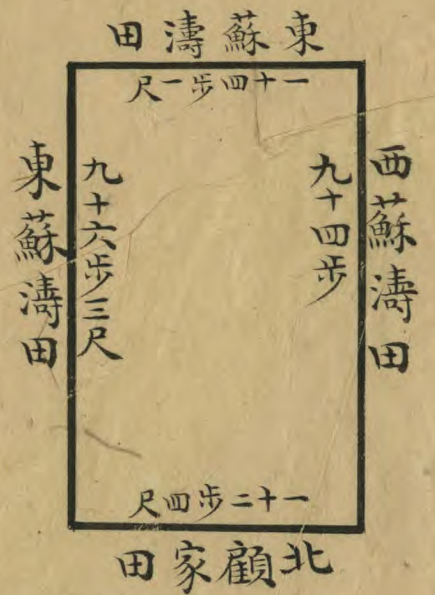 東蘇濤田
一十四步一尺
西蘇濤田
九十四步
九十六步三尺
東蘇濤田
一十二步四尺
北顧家田